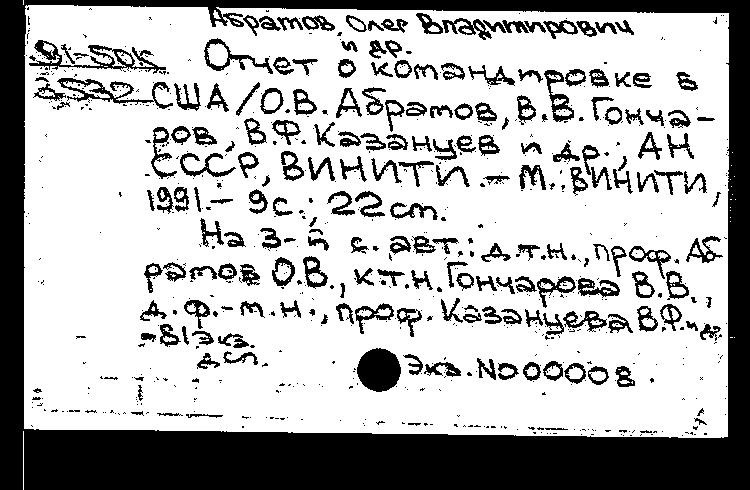 Абрамов, Олег Владимирович
и др.
91-50К Отчет о командировке в
2532 США/О.В. Абрамов, В.В. Гонча-
ров, В.Ф. Казанцев и др.; АН
СССР, ВИНИТИ.- М.: ВИНИТИ,
1991.- 9с.; 22 см.
На 3-й с. авт.: д.т.н., проф. Аб-
рамов О.В., к.т.н. Гончарова В.В.,
д.ф.-м.н., проф. Казанцева В.Ф. и др
-81экз.
дсп.
Экз. №00008.